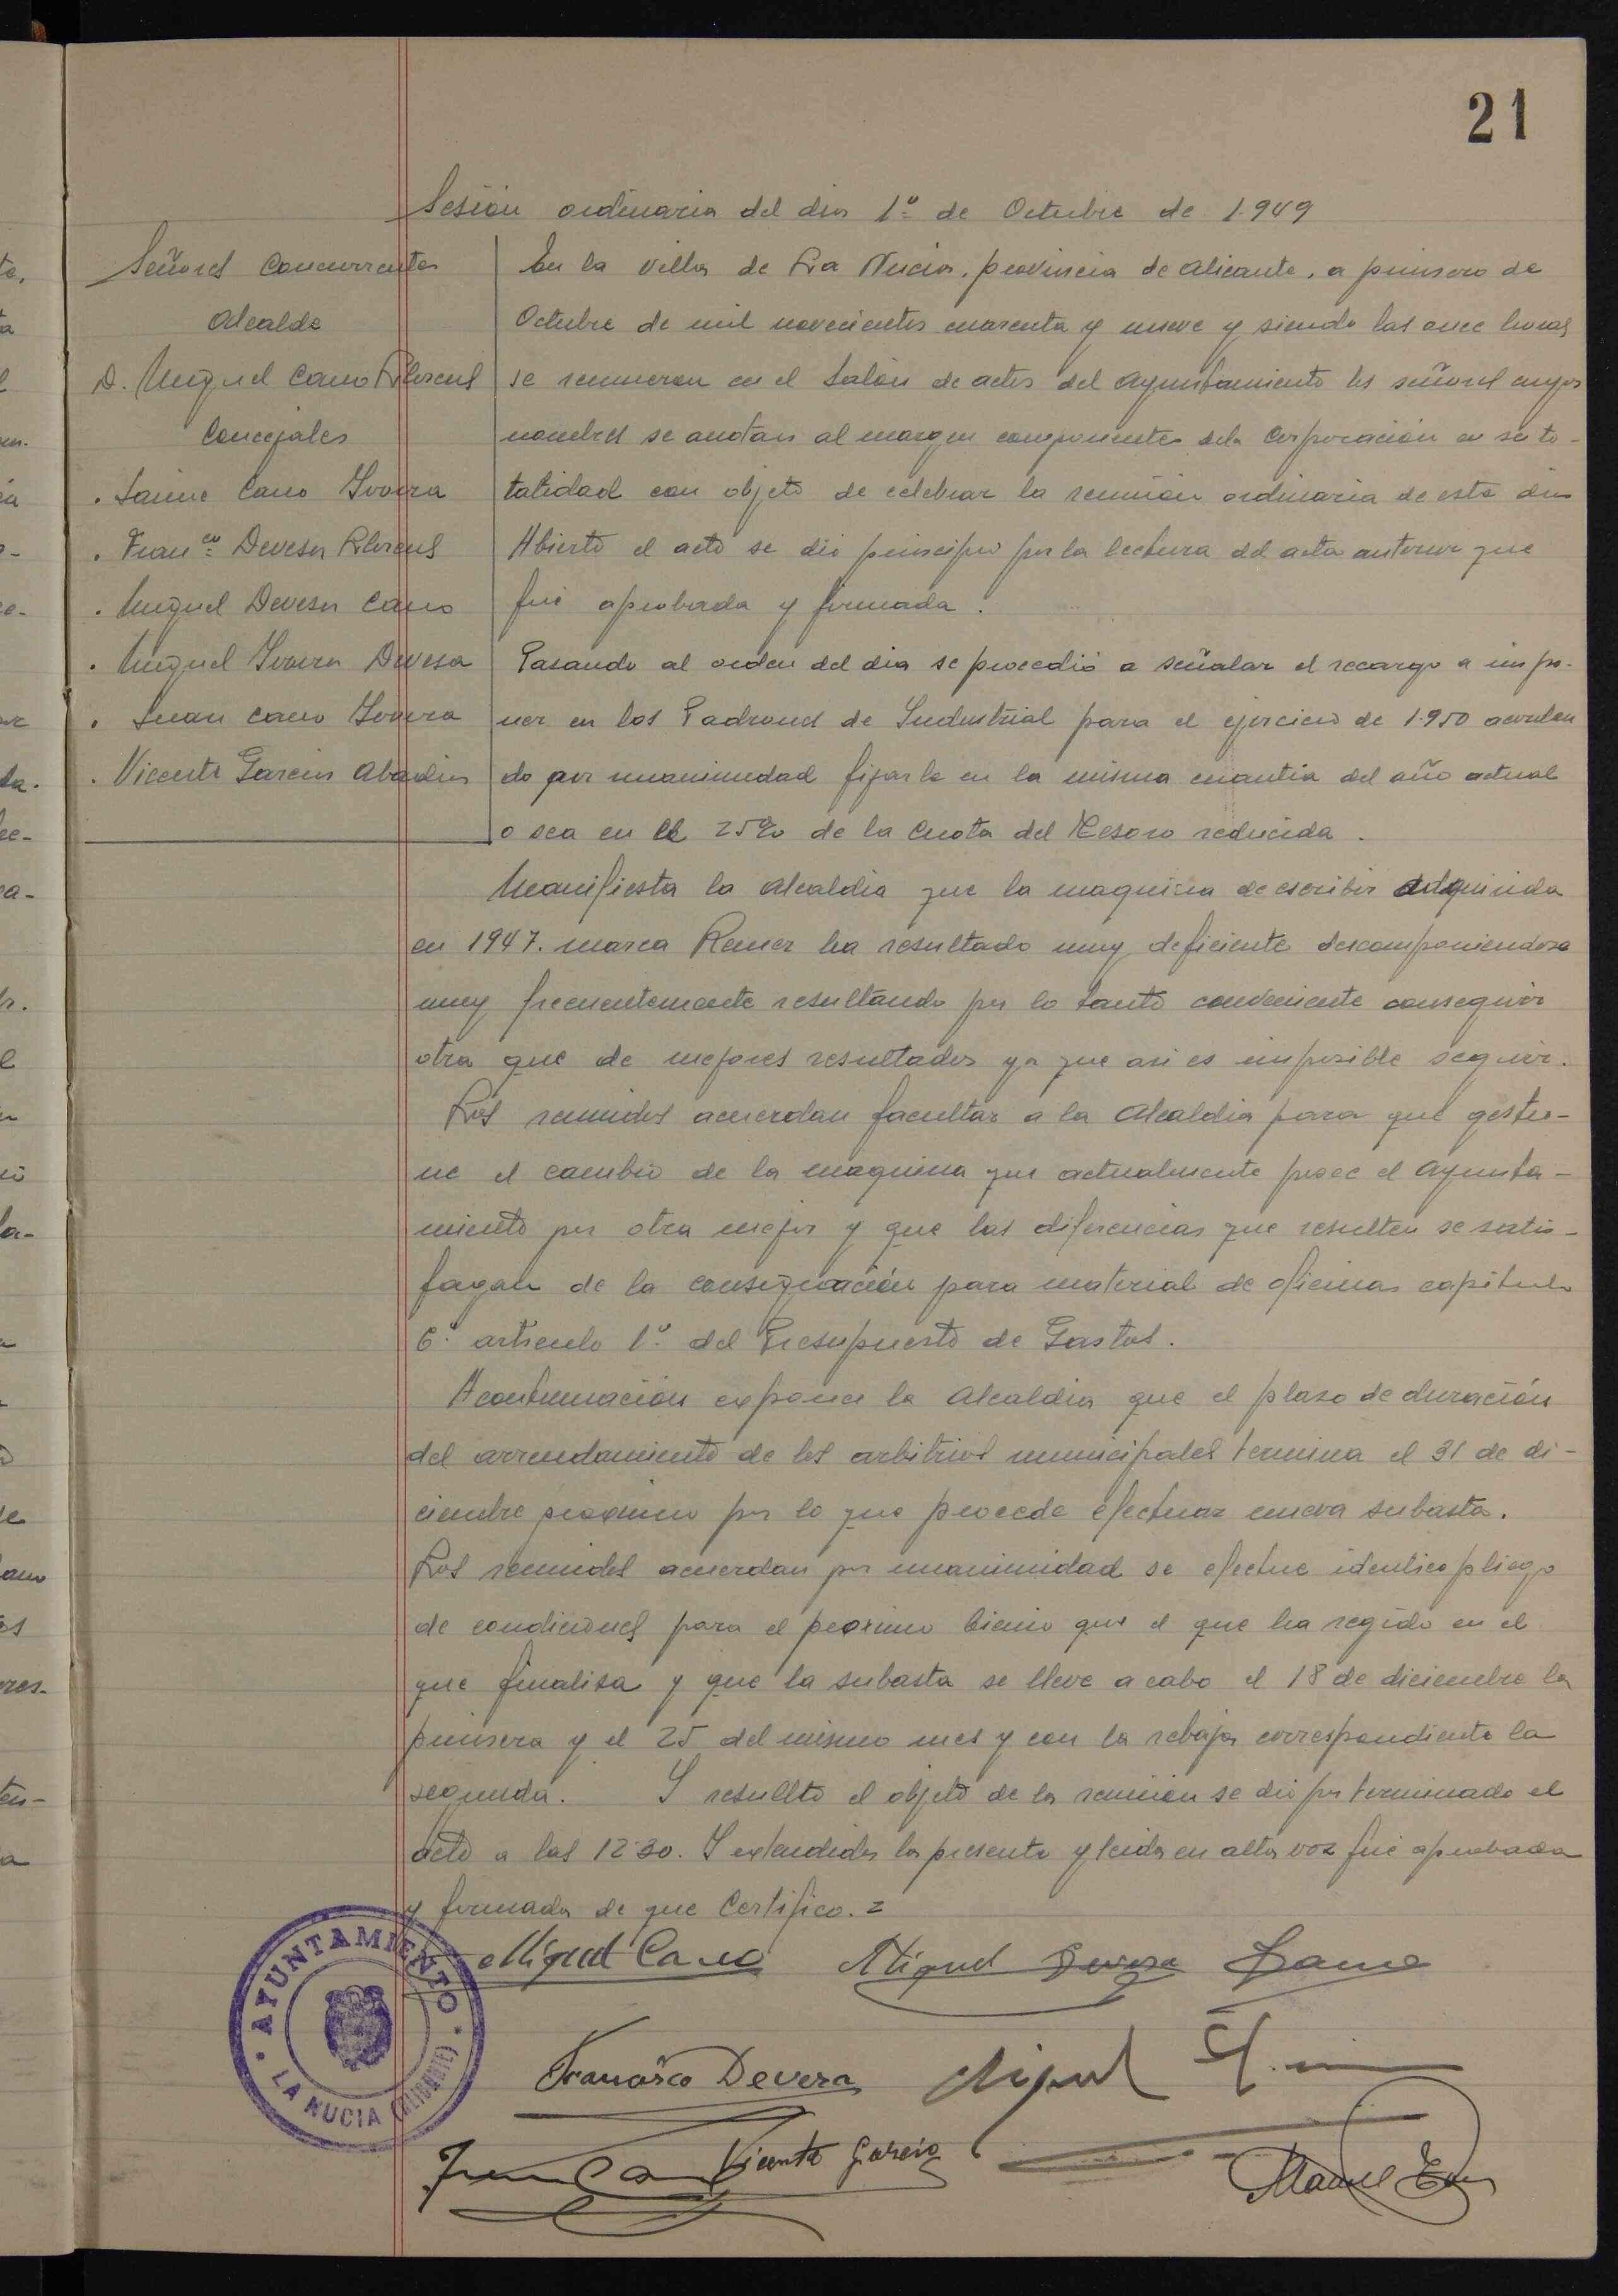 21
Sesión ordinaria del dia 1º de Octubre de 1.949
Señores Concurrentes
Alcalde
D. Miguel Cano Llorens
Concejales
. Jaime Cano Ivorra
. Franco Devesa Llorens
. Miguel Devesa Cano
. Miguel Ivorra Devesa
. Juan Cano Ivorra
. Vicente Garcia Abadia
En la villa de La Nucia, provincia de Alicante, a primero de
Octubre de mil novecientos cuarenta y nueve y siendo las once horas
se reunieron en el Salón de actos del Ayuntamiento los señores cuyos
nombres se anotan al margen componentes de la Corporación en su to-
talidad con objeto de celebrar la reunión ordinaria de este dia
Abierto el acto se dió principio por la lectura del acta anterior que
fué aprobada y firmada.
Pasando al orden del dia se procedió a señalar el recargo a impo-
ner en los Padrones de Industrial para el ejercicio de 1.950 acordan
do por unanimidad fijarle en la misma cuantia del año actual
o sea en el 25% de la Cuota del Tesoro reducida.
Manifiesta la Alcaldia que la maquina de escribir adquirida
en 1947. marca Remer ha resultado muy deficiente descomponiendose
muy frecuentemente resultando por lo tanto conveniente conseguir
otra que de mejores resultados ya que asi es imposible seguir.
Los reunidos acuerdan facultar a la Alcaldia para que gestio-
ne el cambio de la maquina que actualmente posee el Ayunta-
miento por otra mejor y que las diferencias que resulten se satis-
fagan de la consignación para material de oficinas capitulo
6º articulo 1º del Presupuesto de Gastos.
A continuación expone la Alcaldia que el plazo de duración
del arrendamiento de los arbitrios municipales termina el 31 de di-
ciembre proximo por lo que procede efectuar nueva subasta.
Los reunidos acuerdan por unanimidad se efectue identico pliego
de condiciones para el proximo bienio que el que ha regido en el
que finaliza y que la subasta se lleve a cabo el 18 de diciembre la
primera y el 25 del mismo mes y con la rebaja correspondiente la
segunda. Y resuelto el objeto de la reunión se dió por terminado el
acto a las 12'30. Y extendida la presente y leida en alta voz fué aprobada
y firmada de que Certifico.=
Miguel Cano Miguel Devesa Jaime
Francisco Devesa Miguel
Juan Cano Vicente Garcia Manuel
AYUNTAMIENTO
LA NUCIA (ALICANTE)